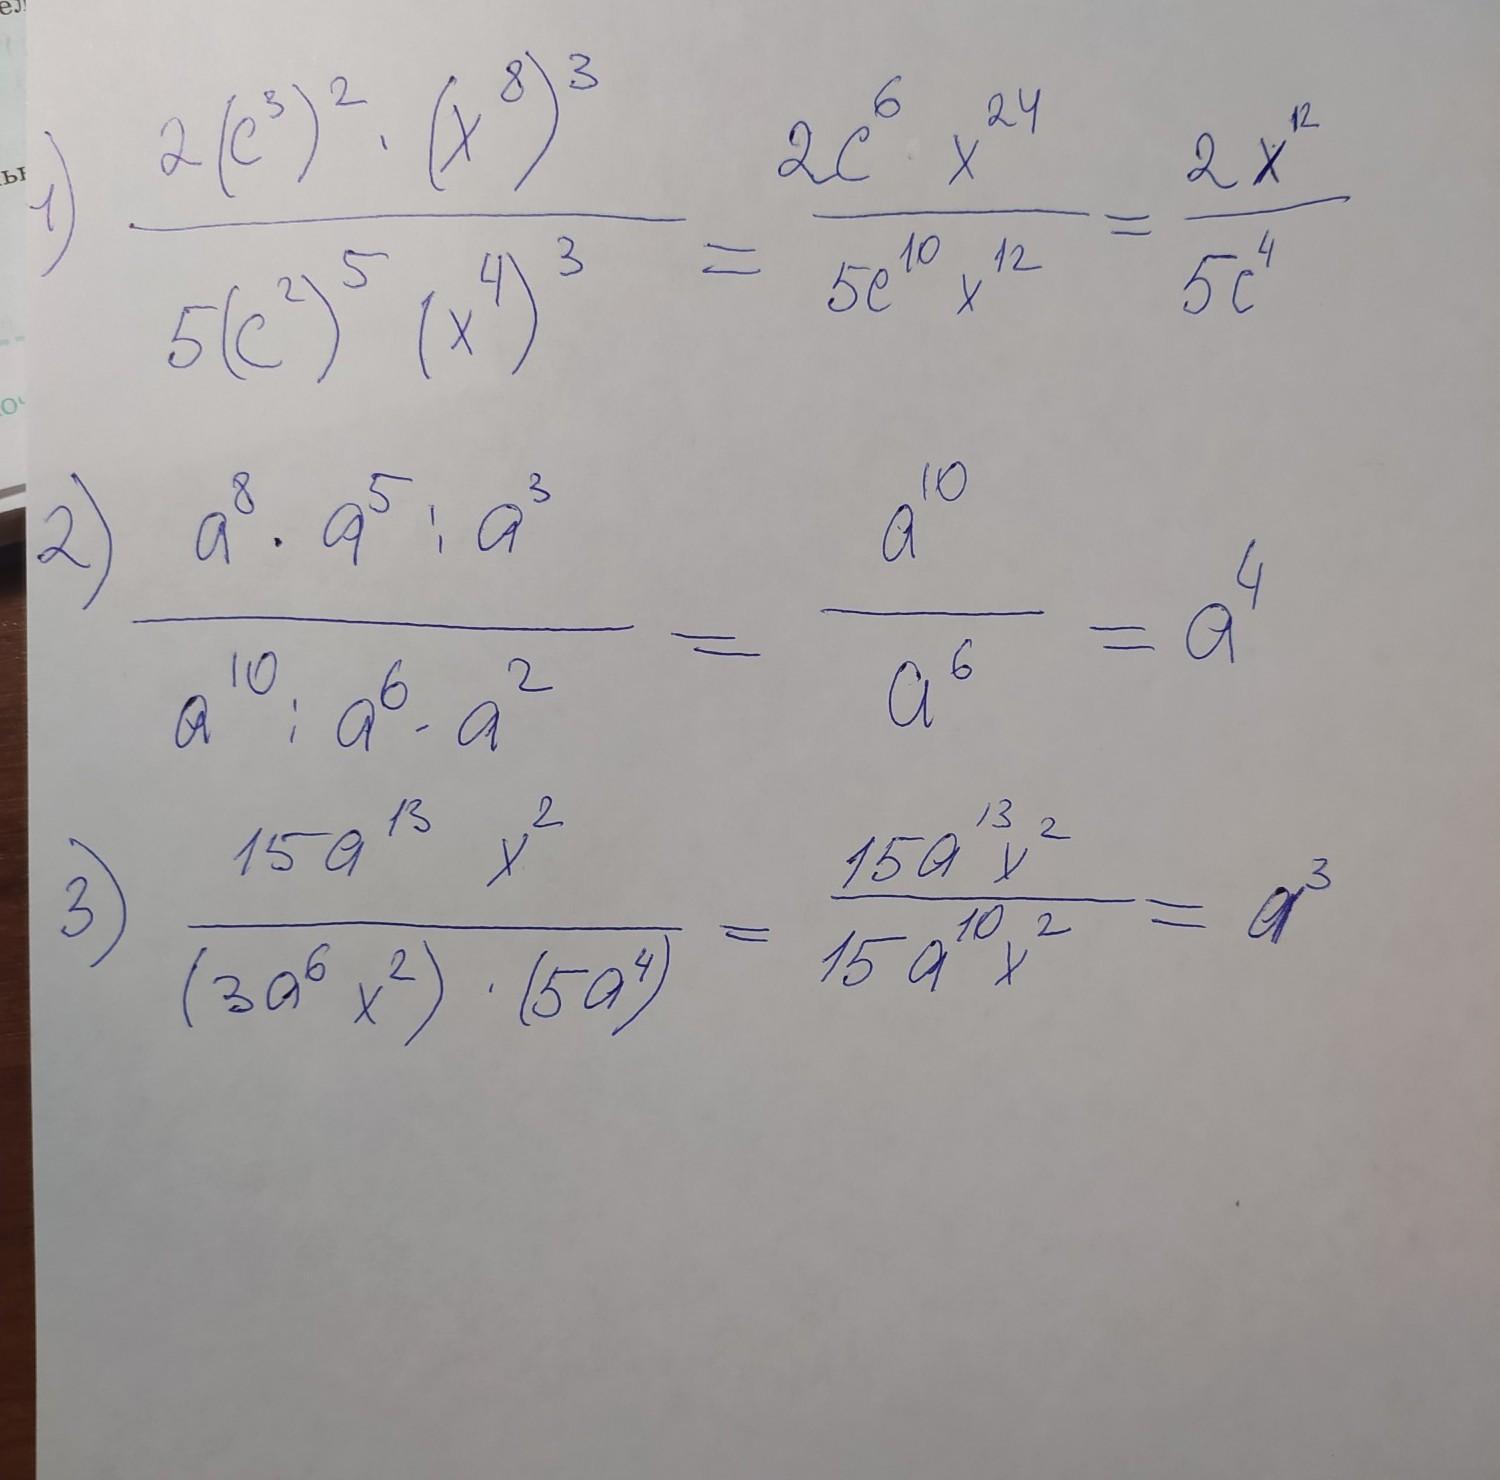 ел
ьн
оч
1) 2(c³)² · (x⁸)³ / 5(c²)⁵ (x⁴)³ = 2c⁶ x²⁴ / 5c¹⁰ x¹² = 2x¹² / 5c⁴
2) a⁸ · a⁵ : a³ / a¹⁰ : a⁶ · a² = a¹⁰ / a⁶ = a⁴
3) 15a¹³ x² / (3a⁶ x²) · (5a⁴) = 15a¹³x² / 15a¹⁰x² = a³